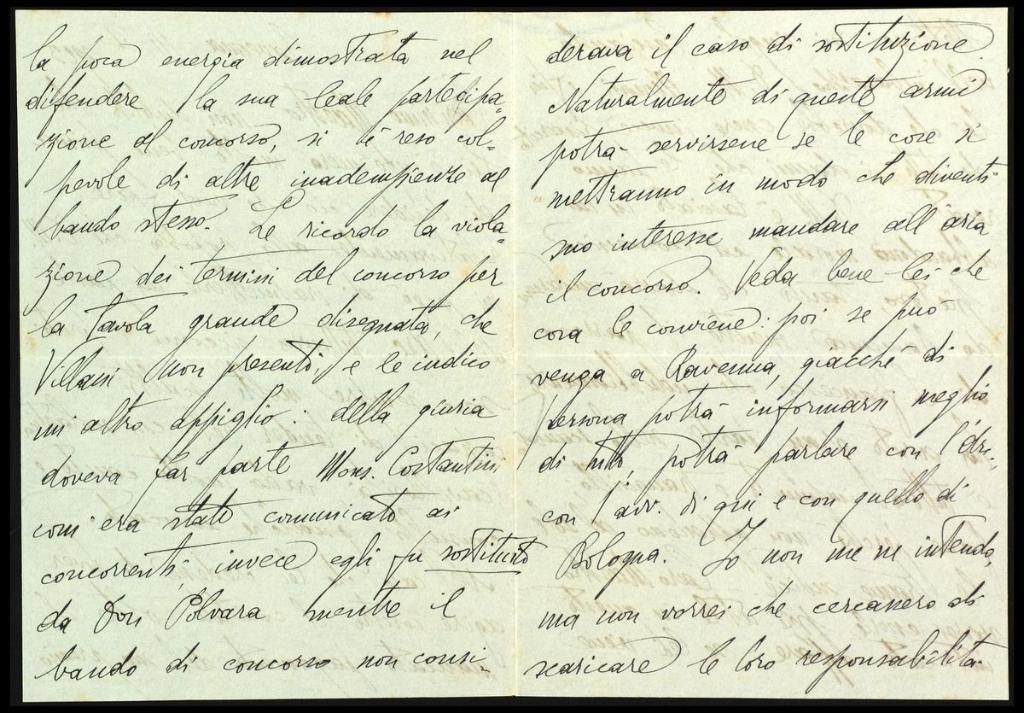 la poca energia dimostrata nel
difendere la sua leale partecipa-
zione al concorso, si è reso col-
pevole di altre inadempienze al
bando stesso. Le ricordo la viola-
zione dei termini del concorso per
la tavola grande disegnata, che
Villani non presentò, e le indico
un altro appiglio: della giuria
doveva far parte Mons. Costantini
com'era stato comunicato ai
concorrenti, invece egli fu sostituito
da Don Polvara mentre il
bando di concorso non consi-
derava il caso di sostituzione.
Naturalmente di queste armi
potrà servirsene se le cose si
mettranno in modo che diventi
suo interesse mandare all'aria
il concorso. Veda bene lei che
cosa le conviene: poi se può
venga a Ravenna, giacchè di
persona potrà informarsi meglio
di tutto, potrà parlare con
con l'avv. di qui e con quello di
Bologna. Io non me ne intendo,
ma non vorrei che cercassero di
scaricare le loro responsabilità